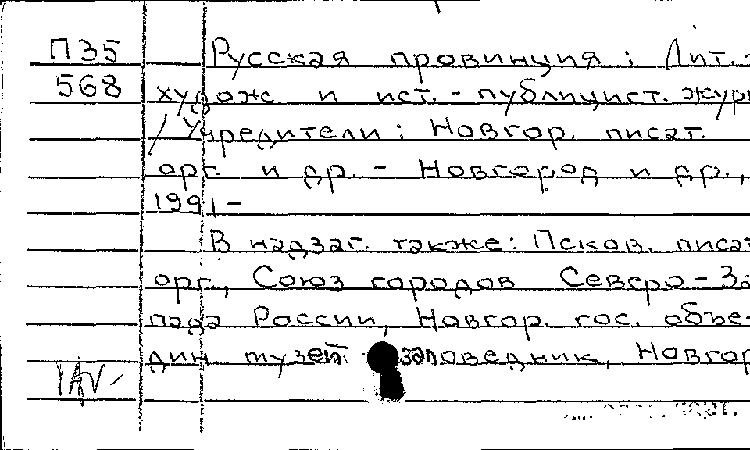 П35 Русская провинция: Лит.-
568 худож. и ист.-публицист. журн
/ Учредители: Новгор. писат.
орг. и др. - Новгород и др.,
1991-
В надзаг. также: Псков. писат
орг., Союз городов Северо-За
пада России, Новгор. гос. объе-
дин музей заповедник, Новгор